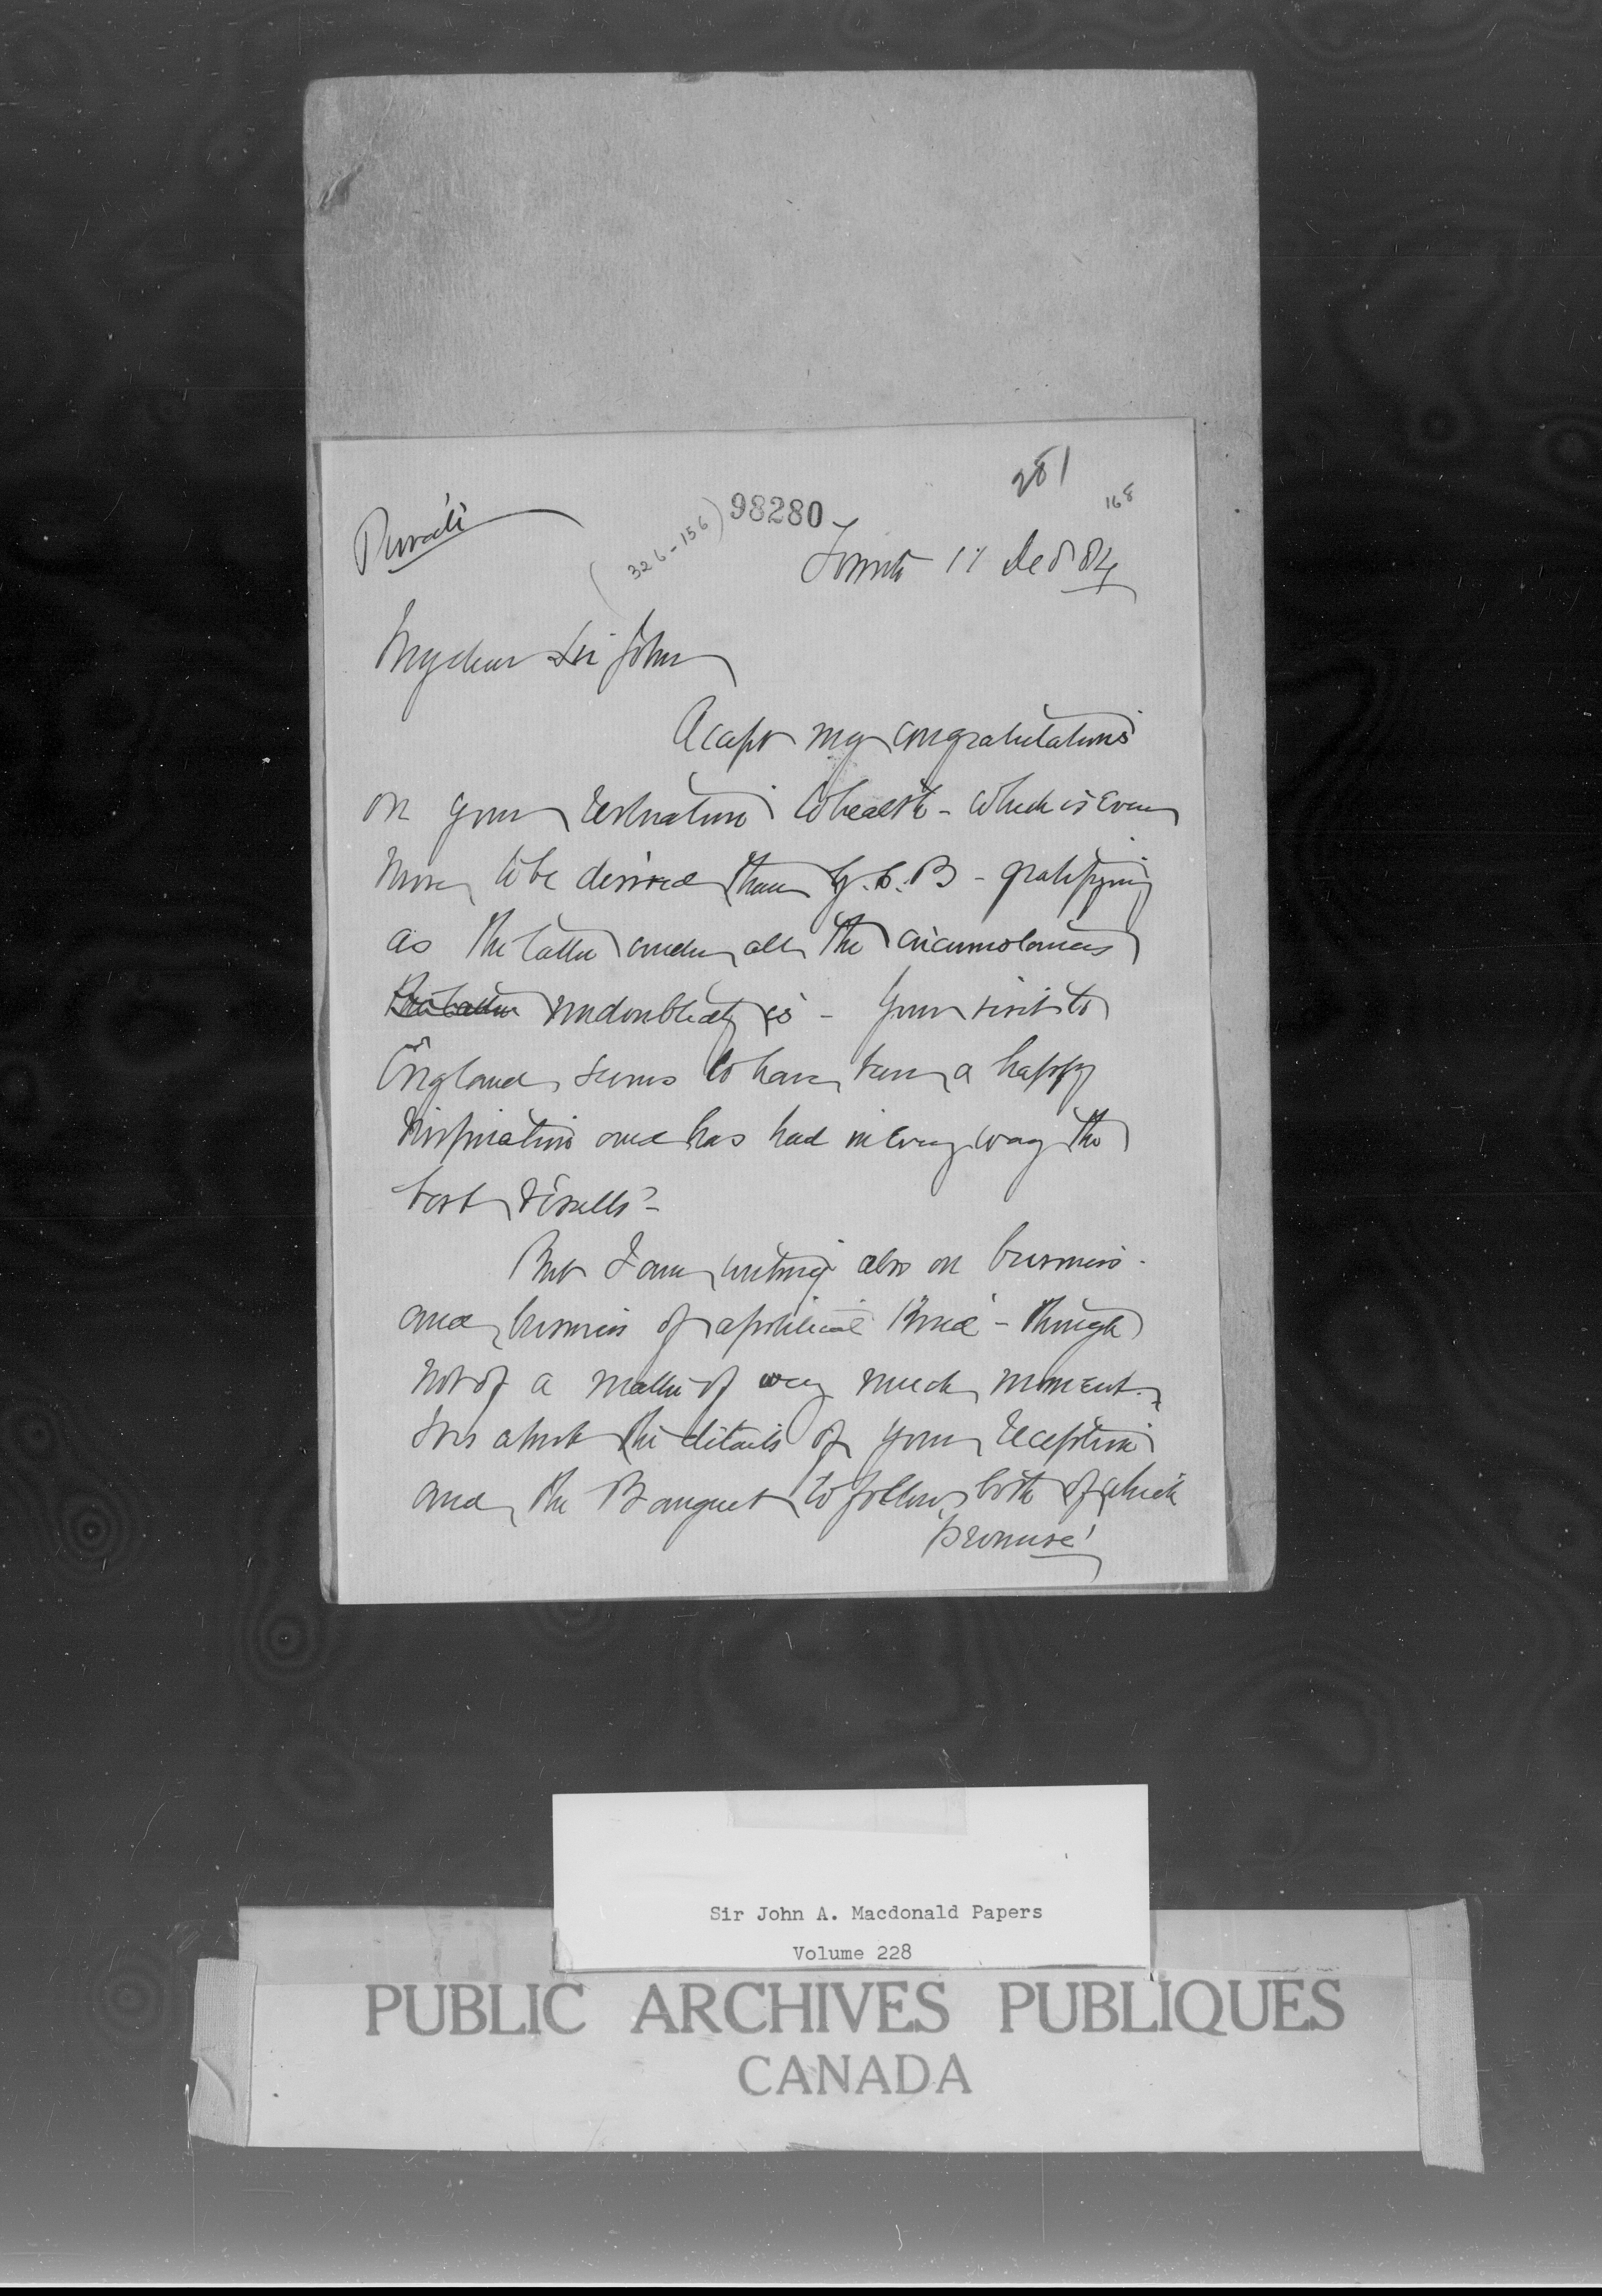 281
168
98280
(326-156)
Private
Toronto 17 Dec 84
My dear Sir John
Accept my congratulations
on your restoration to health - which is even
more to be desired than G.C.B - gratifying
as the latter under all the circumstances
undoubtedly is - Your visit to
England seems to have been a happy
inspiration and has had in every way the
best results -
But I am writing also on business -
and business of a political kind - though
not of a matter of very much moment.
It is about the details of your reception
and the Banquet to follow, both of which
promise
Sir John A. Macdonald Papers
Volume 228
PUBLIC ARCHIVES PUBLIQUES
CANADA